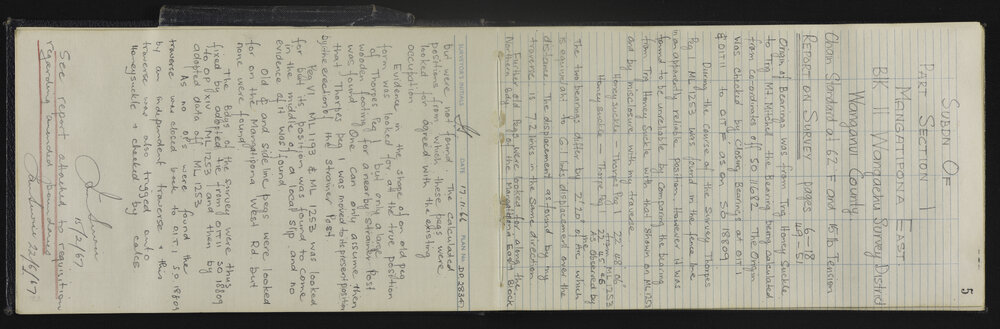 5
SUBDN OF
PART SECTION 1
MANGATIPONA EAST.
Blk II Nongaehu Survey District
Wanganui County
Chain Standard at 62°F and 15 lb Tension
REPORT ON SURVEY pages 6-18
Origin of Bearings was from Trig Honey Suckle
to Trig Mt Mitchel the Bearing being calculated
from coordinates off SO 17682. The Origin
was checked by closing Bearings at OIT I
& OIT II to OIT F as on S.O 18809
During the course of the survey Thorpes
Peg 1 ML 1253 was found in the fence line
in an apparently reliable position. However it was
found to be unreliable by comparing the bearing
from Trig Honey Suckle with that shown on ML 1253
and by misclosure with my traverse
Honeysuckle - Thorpe Peg 1 22° 08' 06" ML 1253
Honeysuckle - Thorpe Peg 1 As observed by me
The two bearings differ by 2' 20" of arc which
is equivalent to 6.1 links displacement over the
distance. The displacement as found by my
traverse is 7.2 links in the same direction
Further old Pegs were looked for along the
Northern edge of the Mangatipona East Block
SURVEYOR'S INITIALS DATE 17.11.66 PLAN No. DP 28302
but were not found. The calculated
positions from which these pegs were
looked for agreed with the existing
occupation
Evidence in the shape of an old peg
form was looked for at the true position
of Thorpes Peg 1 but only a large
wooden earing for a nearby strainer Post
was found. One can only assume then
that Thorpes peg 1 was moved to its present position
by the erection of the strainer Post
Peg VI ML 1193 & ML 1253 was looked
for but its position was found to come
in the middle of a local slip and no
evidence of it was found
Old ₵ and side line pegs were looked
for on the Mangatipona West Rd but
none were found
The Bdys of the Survey were thus
fixed by adopting from OIT II SO 18809
to OP XIV ML 1253 and then by
adopted data off ML 1253
As no OP's were found the
traverse was closed back to OIT I SO 18809
by an independent traverse & this
traverse was also trigged onto
Honeysuckle & checked by scales
15/2/67
See report attached to requisition
regarding amended boundaries
22/6/67